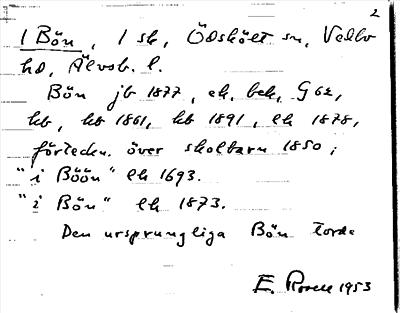 2
1 Bön, 1 sk, Ödskölt sn, Vedbo
hd, Älvsb. l.
Bön jb 1877, ek, bek, G 62,
hb, hb 1861, hb 1891, lk 1878,
förteckn. över skolbarn 1850;
"i Böön" lk 1693.
"i Bön" lk 1873.
Den ursprungliga Bön torde
E. 1953